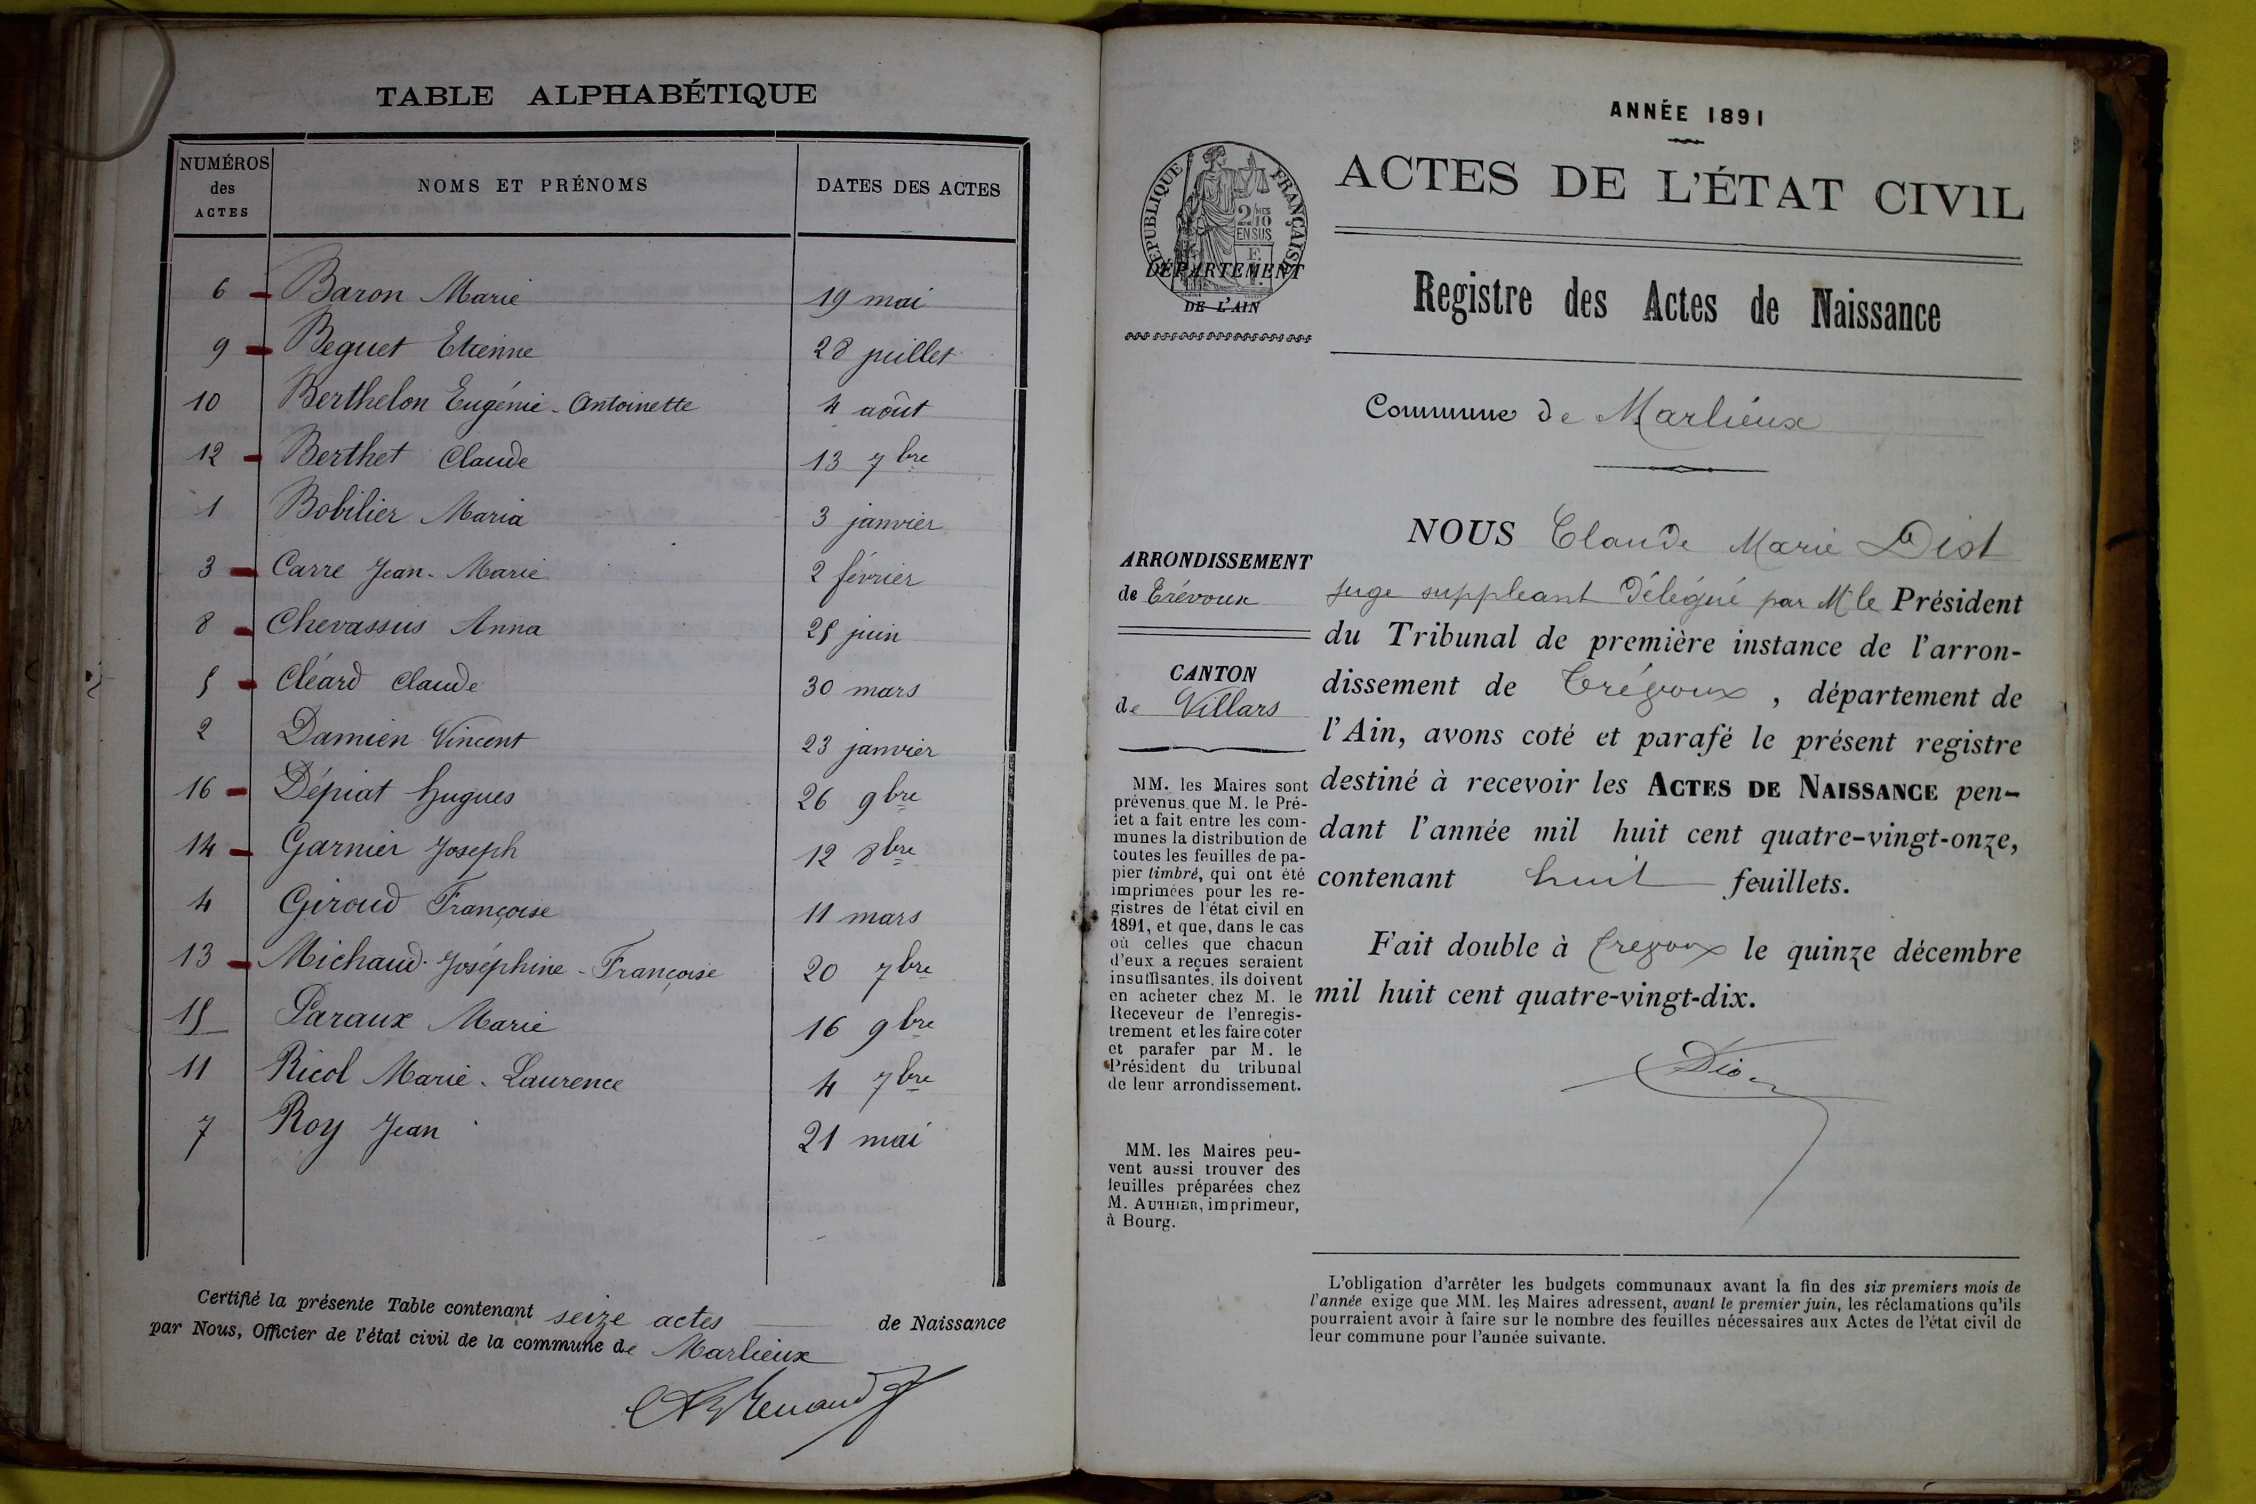 TABLE ALPHABÉTIQUE
NUMÉROS des ACTES NOMS ET PRÉNOMS DATES DES ACTES
6 Baron Marie 19 mai
9 Beguet Etienne 28 juillet
10 Berthelon Eugénie-Antoinette 4 août
12 Berthet Claude 13 7bre
1 Bobilier Maria 3 janvier
3 Carre Jean-Marie 2 février
8 Chevassus Anna 25 juin
5 Cléard Claude 30 mars
2 Damien Vincent 23 janvier
16 Dépiat Hugues 26 9bre
14 Garnier Joseph 12 8bre
4 Giroud Françoise 11 mars
13 Michaud Joséphine-Françoise 20 7bre
15 Paraux Marie 16 9bre
11 Ricol Marie-Laurence 4 7bre
7 Roy Jean 21 mai
Certifié la présente Table contenant seize actes de Naissance
par Nous, Officier de l'état civil de la commune de Marlieux
ANNÉE 1891
RÉPUBLIQUE FRANÇAISE
2 10 EN SUS
DÉPARTEMENT
DE L'AIN
ACTES DE L'ÉTAT CIVIL
Registre des Actes de Naissance
Commune de Marlieux
ARRONDISSEMENT
de Trévoux
CANTON
de Villars
MM. les Maires sont
prévenus que M. le Pré-
fet a fait entre les com-
munes la distribution de
toutes les feuilles de pa-
pier timbré, qui ont été
imprimées pour les re-
gistres de l'état civil en
1891, et que, dans le cas
où celles que chacun
d'eux a reçues seraient
insuffisantes, ils doivent
en acheter chez M. le
Receveur de l'enregis-
trement et les faire coter
et parafer par M. le
Président du tribunal
de leur arrondissement.
MM. les Maires peu-
vent aussi trouver des
feuilles préparées chez
M. AUTHIER, imprimeur,
à Bourg.
NOUS Claude Marie
juge suppleant délégué par M le Président
du Tribunal de première instance de l'arron-
dissement de Trévoux, département de
l'Ain, avons coté et parafé le présent registre
destiné à recevoir les ACTES DE NAISSANCE pen-
dant l'année mil huit cent quatre-vingt-onze,
contenant huit feuillets.
Fait double à Trevoux le quinze décembre
mil huit cent quatre-vingt-dix.
L'obligation d'arrêter les budgets communaux avant la fin des six premiers mois de
l'année exige que MM. les Maires adressent, avant le premier juin, les réclamations qu'ils
pourraient avoir à faire sur le nombre des feuilles nécessaires aux Actes de l'état civil de
leur commune pour l'année suivante.